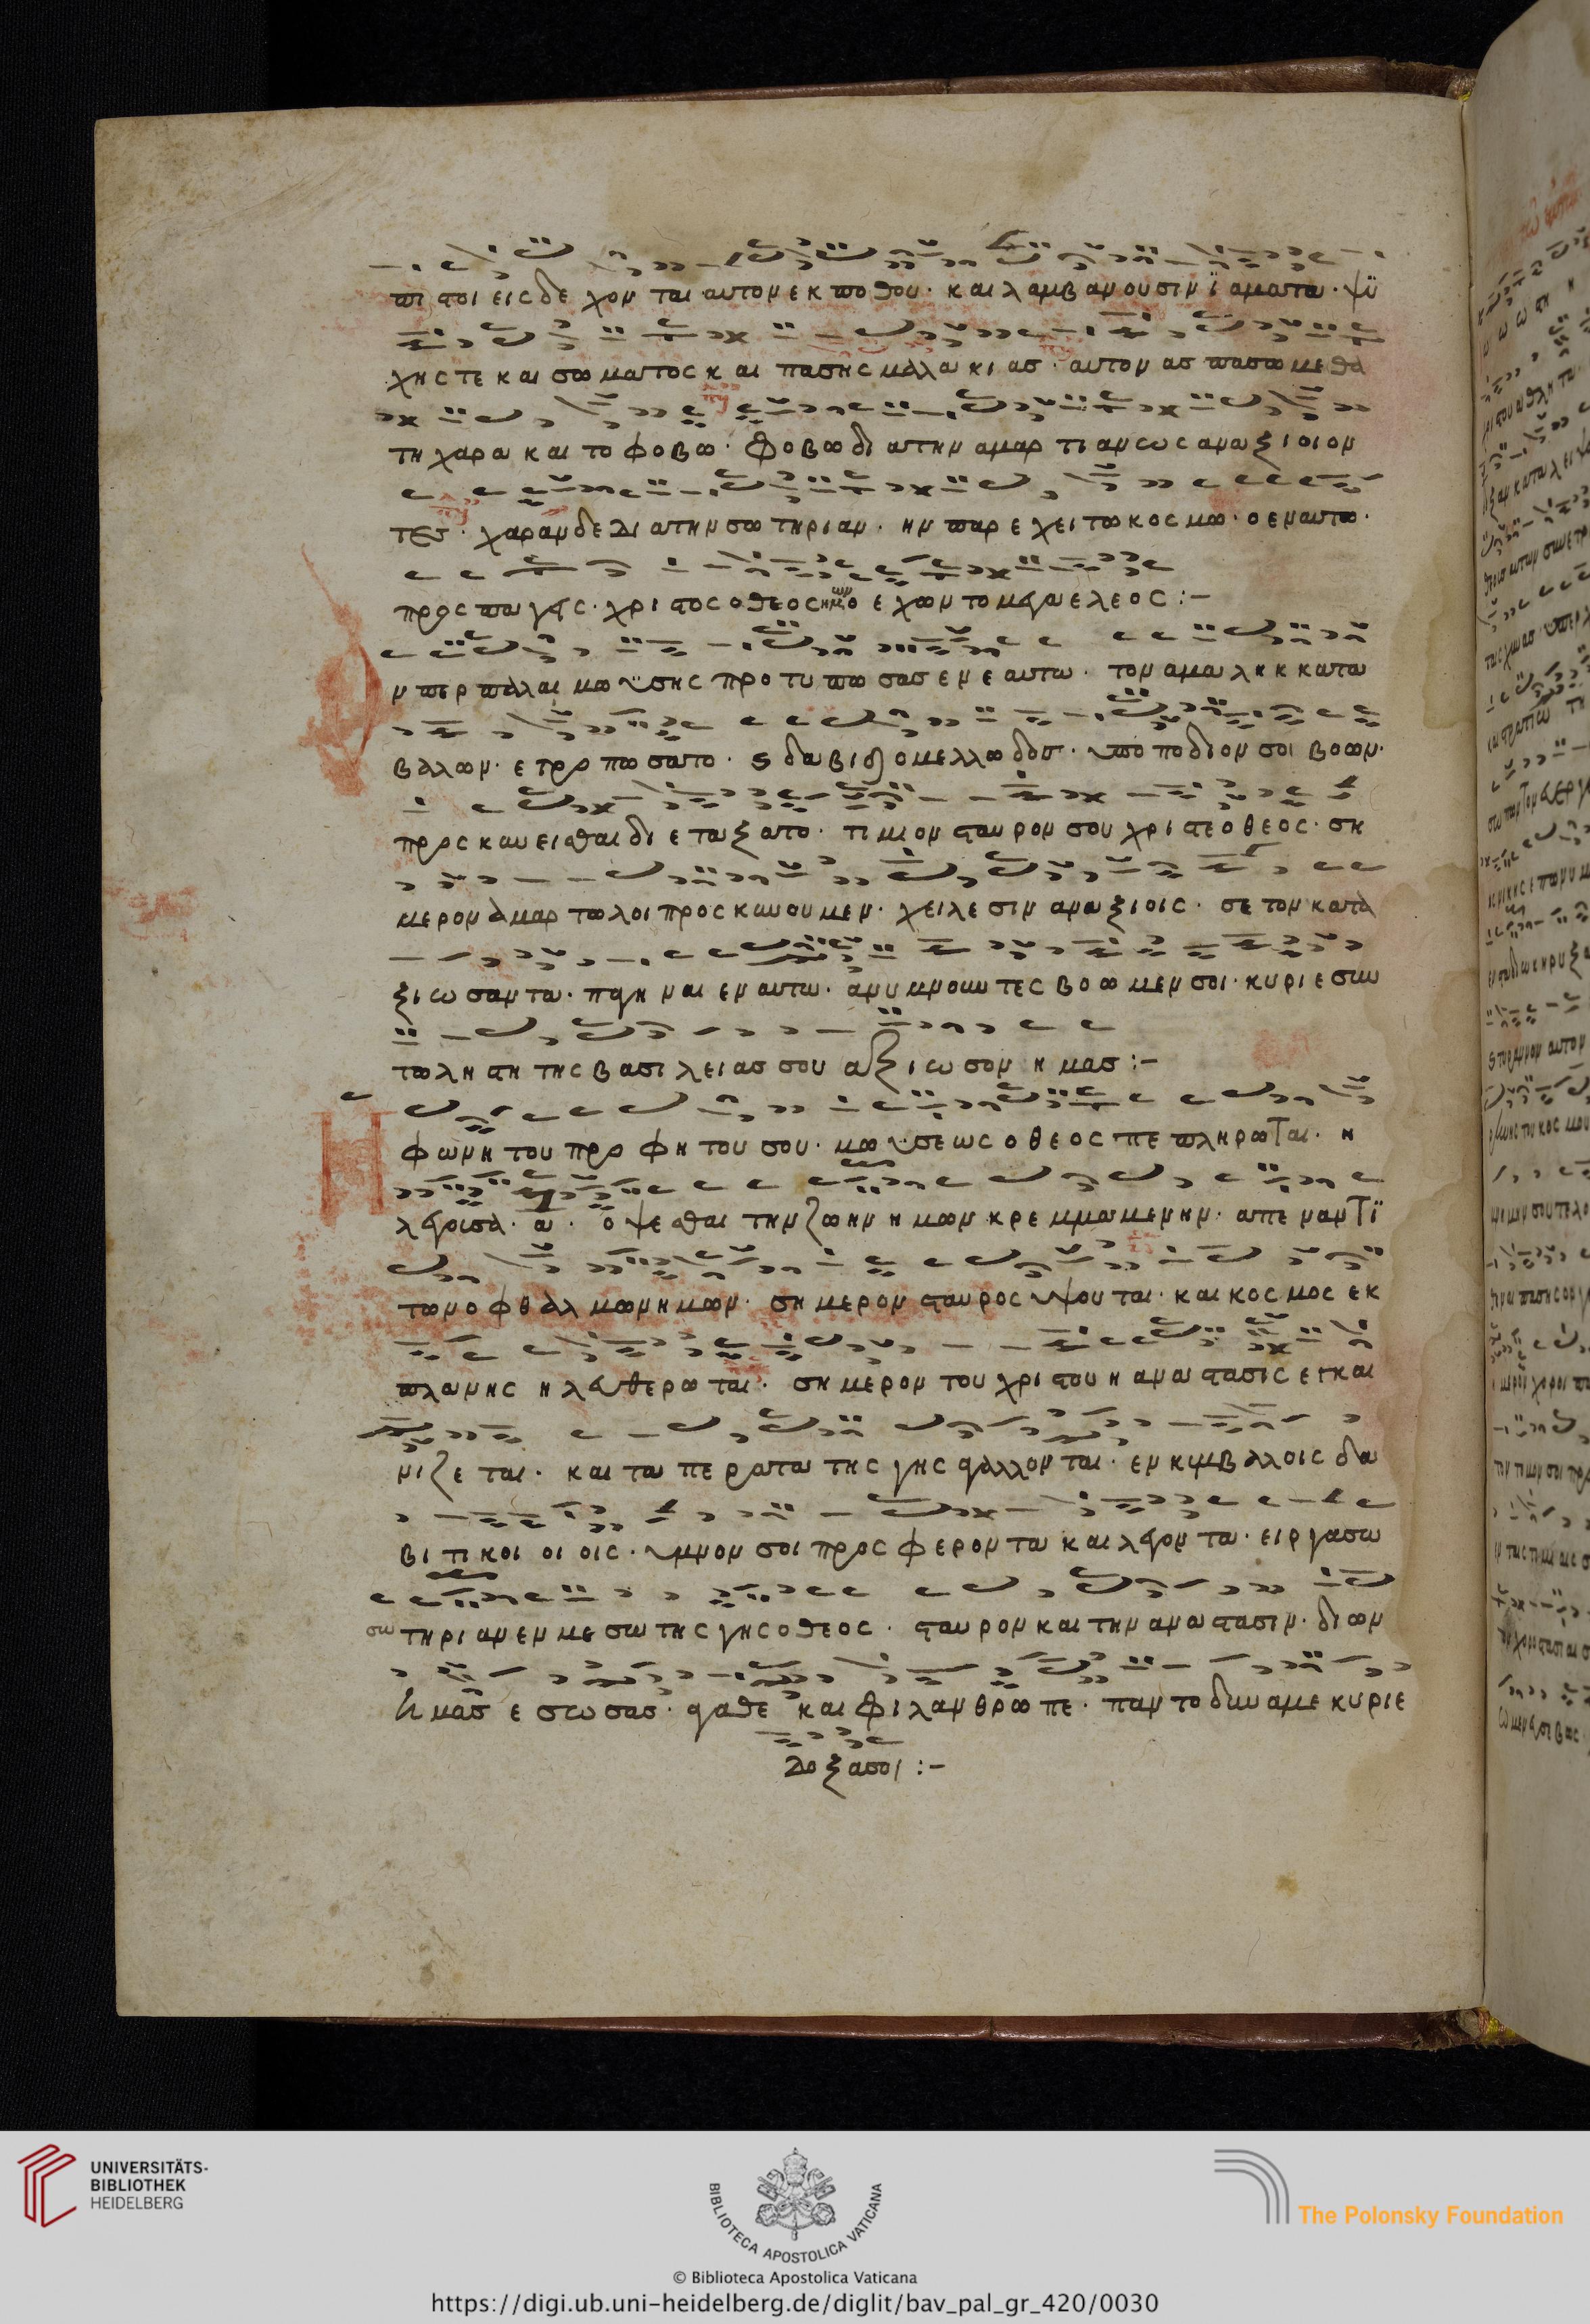 πιστοι εισδεχονται αυτον εκ ποθου· και λαμβανουσιν ϊαματα· ψυ
χης τε και σωματος και πασης μαλακιας· αυτον ασπασωμεθα
τη χαρα και το φοβω· φοβω δια την αμαρτιαν ως αναξιοι ον
τες· χαραν δε δια την σωτηριαν· ην παρεχει τω κοσμω· ο εν αυτω·
προσπαγεις· χριστος ο θεος ημων ο εχων το μεγα ελεος :–
Ονπερ παλαι μωϋσης προτυπωσας εν εαυτω· τον αμαληκ κατα
βαλων· ετροπωσατο· δαβιδ ο μελλωδος· υποποδιον σοι βοων·
προσκυνεισθαι διεταξατο· τιμιον σταυρον σου χριστε ο θεος· ση
μερον αμαρτωλοι προσκυνουμεν· χειλεσιν αναξιοις· σε τον κατα
ξιωσαντα· παγηναι εν αυτω· ανυμνουντες βοωμεν σοι· κυριε συν
τω ληστη της βασιλειας σου αξιωσον ημας :–
Η φωνη του προφητου σου· μωυσεως ο θεος πεπληρωται· η
λεγουσα· οψεσθαι την ζωην ημων κρεμμαμενην· απεναντϊ
των οφθαλμων ημων· σημερον σταυρος υψουται· και κοσμος εκ
πλανης ηλευθερωται· σημερον του χριστου η αναστασις εγκαι
νιζεται· και τα περατα της γης αγαλλονται· εν κυμβαλοις δα
βιτικοι οις· υμνον σοι προσφεροντα και λεγοντα· ειργασω
σωτηριαν εν μεσω της γης ο θεος· σταυρον και την αναστασιν· δι ων
ημας εσωσας· αγαθε και φιλανθρωπε· παντοδυναμε κυριε
δοξα σοι :–
UNIVERSITÄTS-
BIBLIOTHEK
HEIDELBERG
BIBLIOTECA APOSTOLICA VATICANA
The Polonsky Foundation
© Biblioteca Apostolica Vaticana
https://digi.ub.uni-heidelberg.de/diglit/bav_pal_gr_420/0030